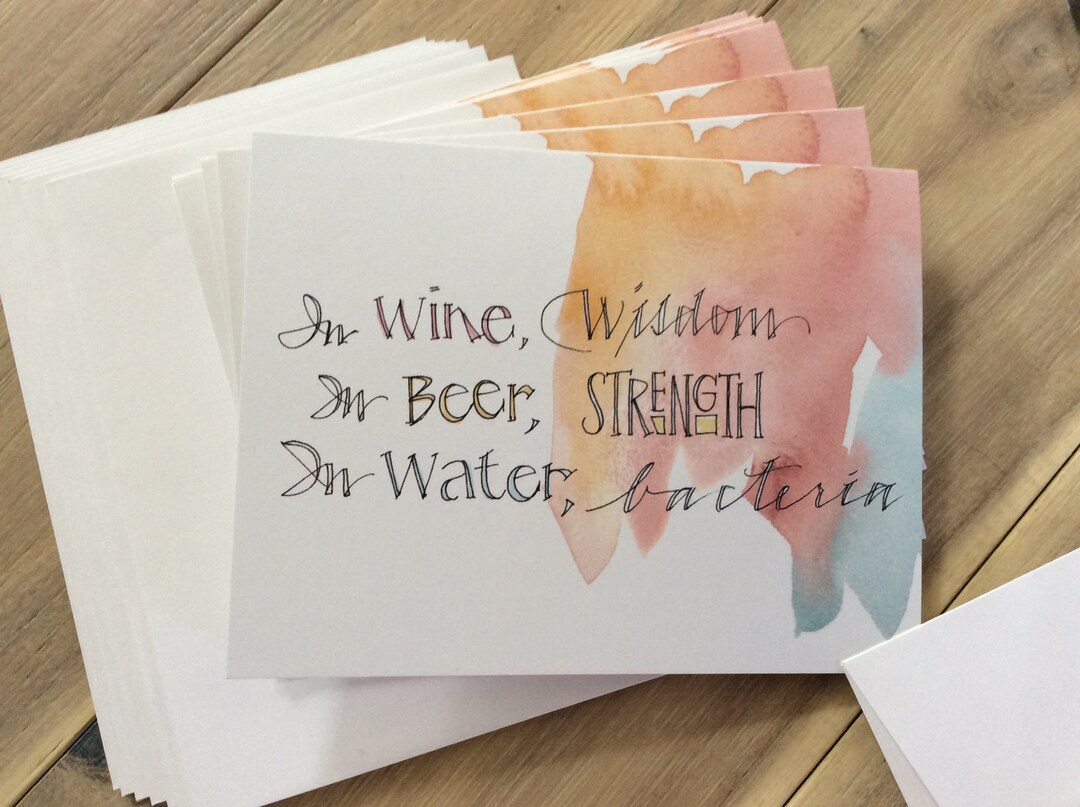 In Wine, Wisdom
In Beer, STRENGTH
In Water, bacteria